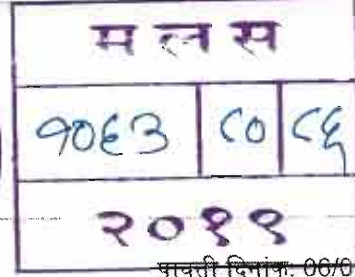 म ल स
१०६३ ८० ८६
२०१९
पावती दिनांक: 06/0